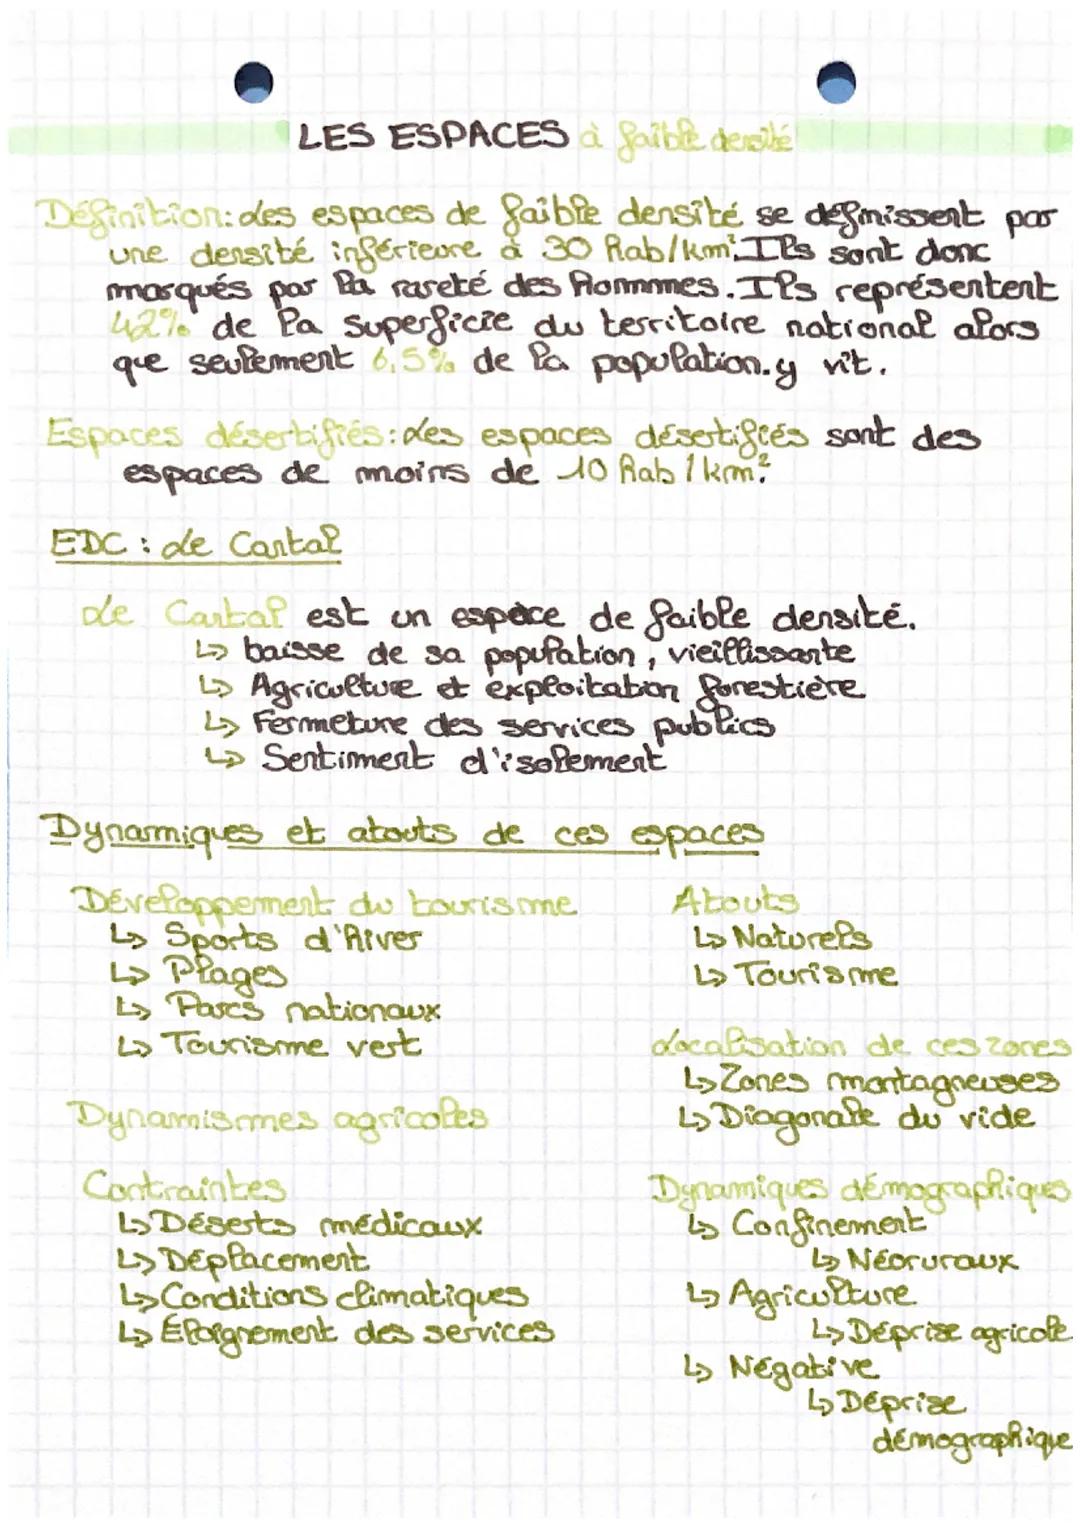 LES ESPACES à faible densité
Définition: Les espaces de faible densité se définissent par
une densité inférieure à 30 hab/km². Ils sont donc
marqués par la rareté des hommes. Ils représentent
42% de la superficie du territoire national alors
que seulement 6,5% de la population.y vit.
Espaces désertifiés: Les espaces désertifiés sont des
espaces de moins de 10 hab/km².
EDC : Le Cantal
Le Cantal est un espace de faible densité.
↳ baisse de sa population, vieillissante
↳ Agriculture et exploitation forestière
↳ Fermeture des services publics
↳ Sentiment d'isolement
Dynamiques et atouts de ces espaces
Développement du tourisme
↳ Sports d'hiver
↳ Plages
↳ Parcs nationaux
↳ Tourisme vert
Dynamismes agricoles
Contraintes
↳ Déserts médicaux
↳ Déplacement
↳ Conditions climatiques
↳ Éloignement des services
Atouts
↳ Naturels
↳ Tourisme
Localisation de ces zones
↳ Zones montagneuses
↳ Diagonale du vide
Dynamiques démographiques
↳ Confinement
↳ Néoruraux
↳ Agriculture
↳ Déprise agricole
↳ Négative
↳ Déprise
démographique